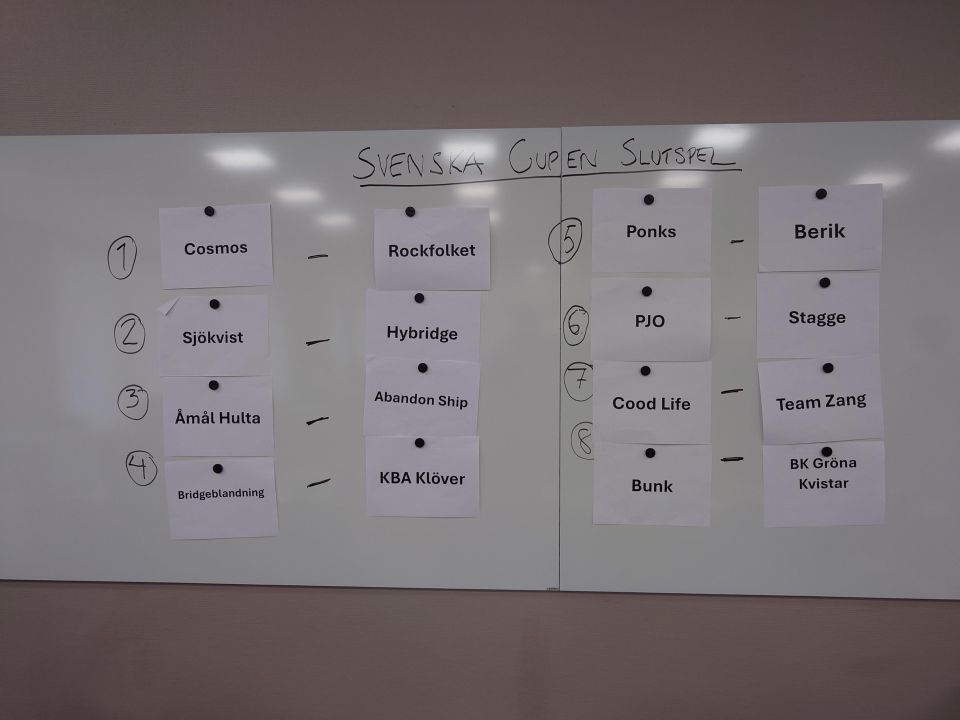 SVENSKA CUPEN SLUTSPEL
1 Cosmos - Rockfolket
2 Sjökvist - Hybridge
3 Åmål Hulta - Abandon Ship
4 Bridgeblandning - KBA Klöver
5 Ponks - Berik
6 PJO - Stagge
7 Cood Life - Team Zang
8 Bunk - BK Gröna
Kvistar